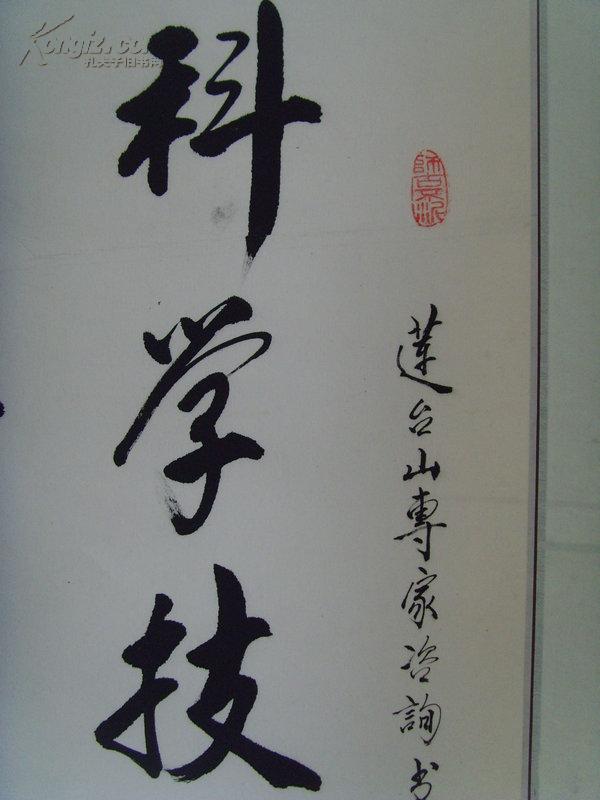 莲台山專家咨詢书
科学技
Kongfz.com
孔夫子旧书网